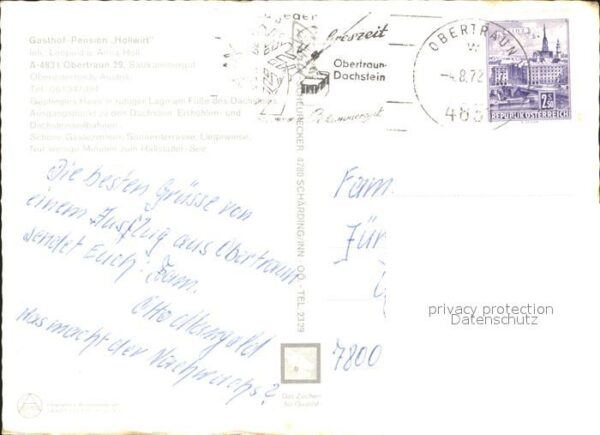 Gasthof-Pension „Höllwirt“
Inh. Leopold u. Anna Höll
A-4831 Obertraun 29, Salzkammergut
Oberösterreich, Austria
Gepflegtes Haus in ruhiger Lage am Fuße des Dachsteins,
Ausgangspunkt zu den Dachstein Eishöhlen- und
Dachsteinseilbahnen.
Schöne Gästezimmer, Sonnenterrasse, Liegewiese.
Nur wenige Minuten zum Hallstätter-See.
Die besten Grüsse von
einem Ausflug aus Obertraun
sendet Euch Fam.
Otto
Was macht der Nachwuchs?
4780 SCHÄRDING/INN - OÖ. - TEL. 2329
Das Zeichen
für Qualität
jeder
Jahreszeit
Obertraun-
Dachstein
Salzkammergut
OBERTRAUN
-4.8.72
483
2.50
REPUBLIK ÖSTERREICH
Fam.
Jür
7800
privacy protection
Datenschutz